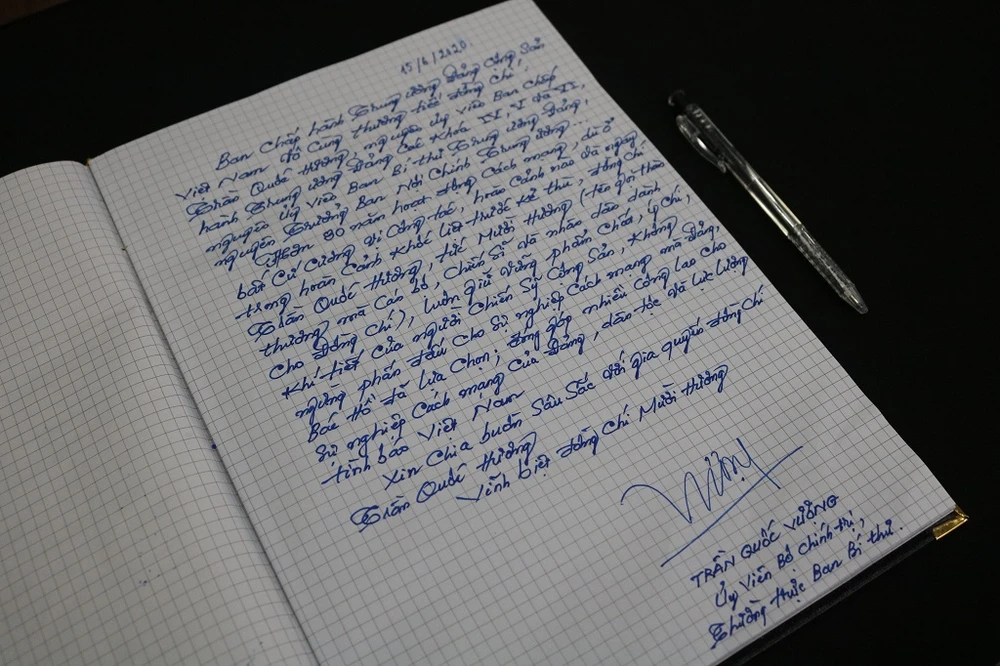 15/6/2020
Ban Chấp hành Trung ương Đảng Cộng Sản
Việt Nam vô cùng thương tiếc đồng chí
Trần Quốc Hương, nguyên ủy viên Ban Chấp
hành Trung ương Đảng các khóa IV, V và VI,
nguyên ủy viên Ban Bí thư Trung ương Đảng,
nguyên Trưởng Ban Nội Chính Trung ương...
Hơn 80 năm hoạt động Cách mạng, dù ở
bất cứ cương vị công tác, hoàn cảnh nào và ngay
trong hoàn cảnh khốc liệt trước kẻ thù, đồng chí
Trần Quốc Hương, tức Mười Hương (tên gọi thân
thương mà cán bộ, chiến sĩ và nhân dân dành
cho đồng chí), luôn giữ vững phẩm chất, ý chí,
khí tiết của người chiến sỹ Cộng Sản, không
ngừng phấn đấu cho sự nghiệp Cách mạng mà Đảng,
Bác Hồ đã lựa chọn; đóng góp nhiều công lao cho
sự nghiệp cách mạng của Đảng, dân tộc và lực lượng
tình báo Việt Nam
Xin chia buồn sâu sắc với gia quyến đồng chí
Trần Quốc Hương
Vĩnh biệt đồng chí Mười Hương
TRẦN QUỐC VƯỢNG
Ủy viên Bộ Chính trị,
Thường trực Ban Bí thư.